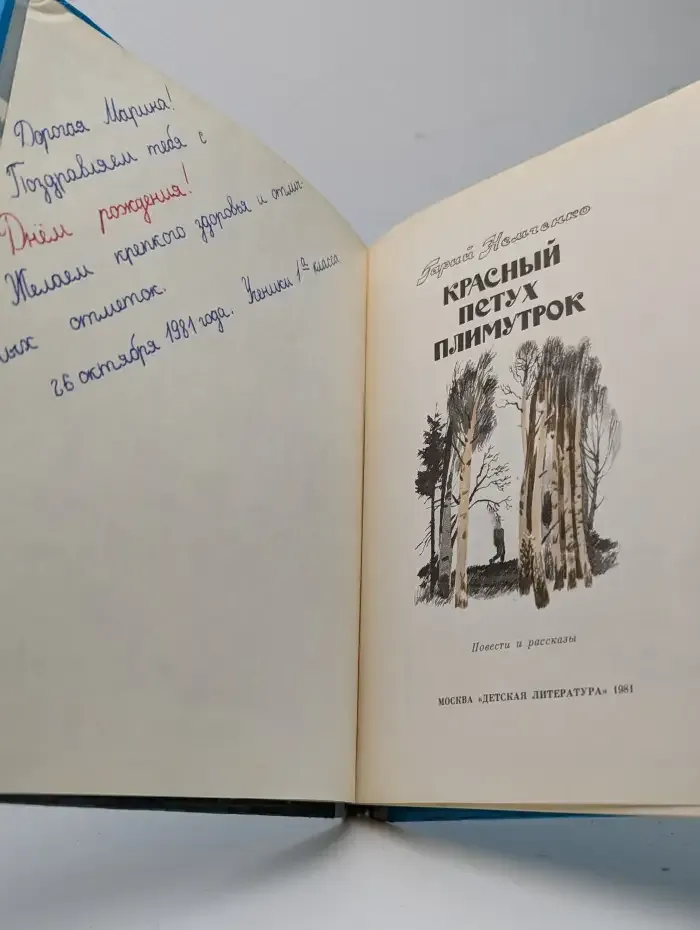 Дорогая Марина!
Поздравляем тебя с
Днём рождения!
Желаем крепкого здоровья и отлич-
ных отметок.
26 октября 1981 года. Ученики 1а класса
Гарий Немченко
КРАСНЫЙ
ПЕТУХ
ПЛИМУТРОК
Повести и рассказы
МОСКВА «ДЕТСКАЯ ЛИТЕРАТУРА» 1981